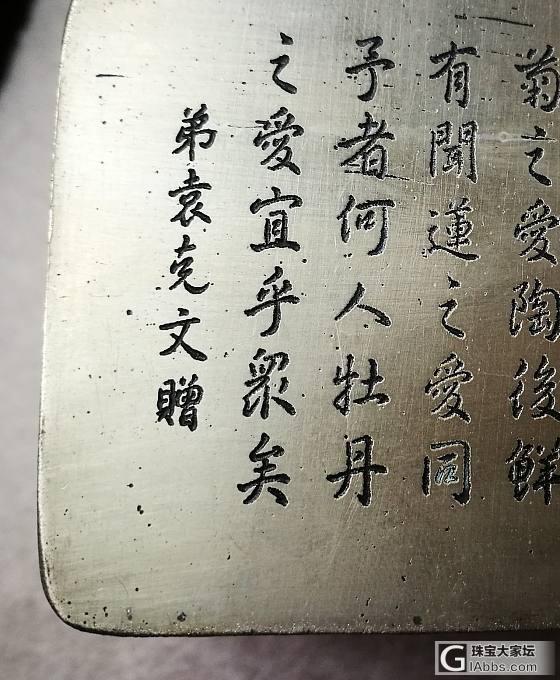 菊之愛陶後鮮
有聞蓮之愛同
予者何人牡丹
之愛宜乎眾矣
弟袁克文贈
G 珠宝大家坛
lAbbs.com